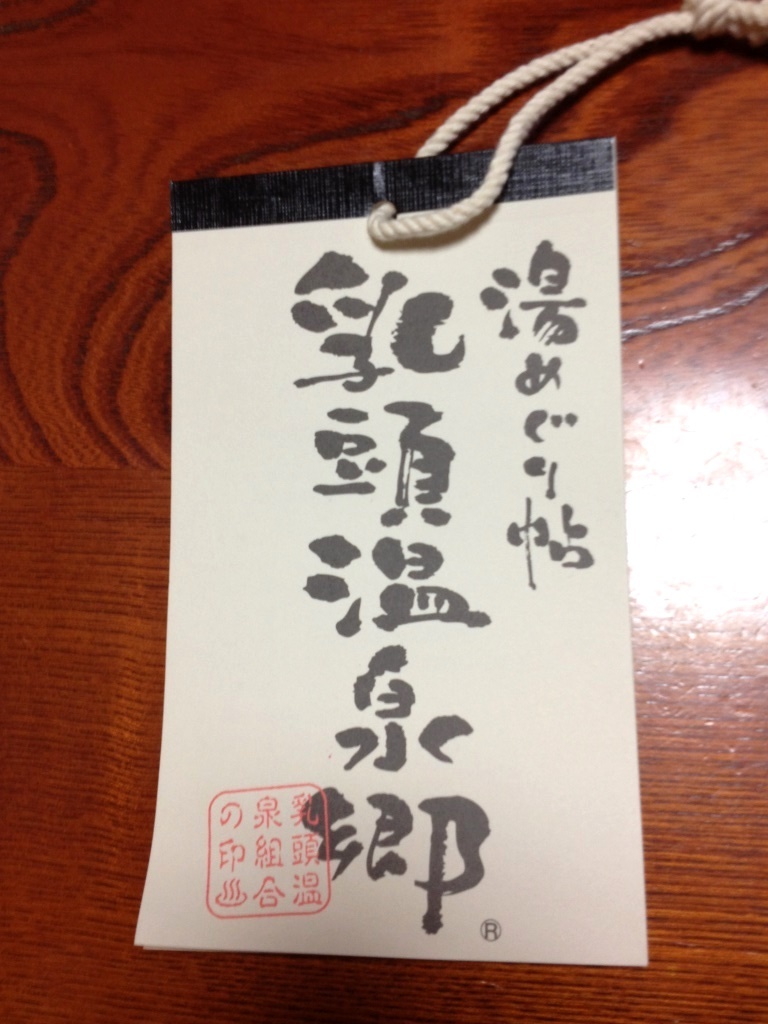 湯めぐり帖
乳頭温泉郷
乳頭温
泉組合
の印♨
®